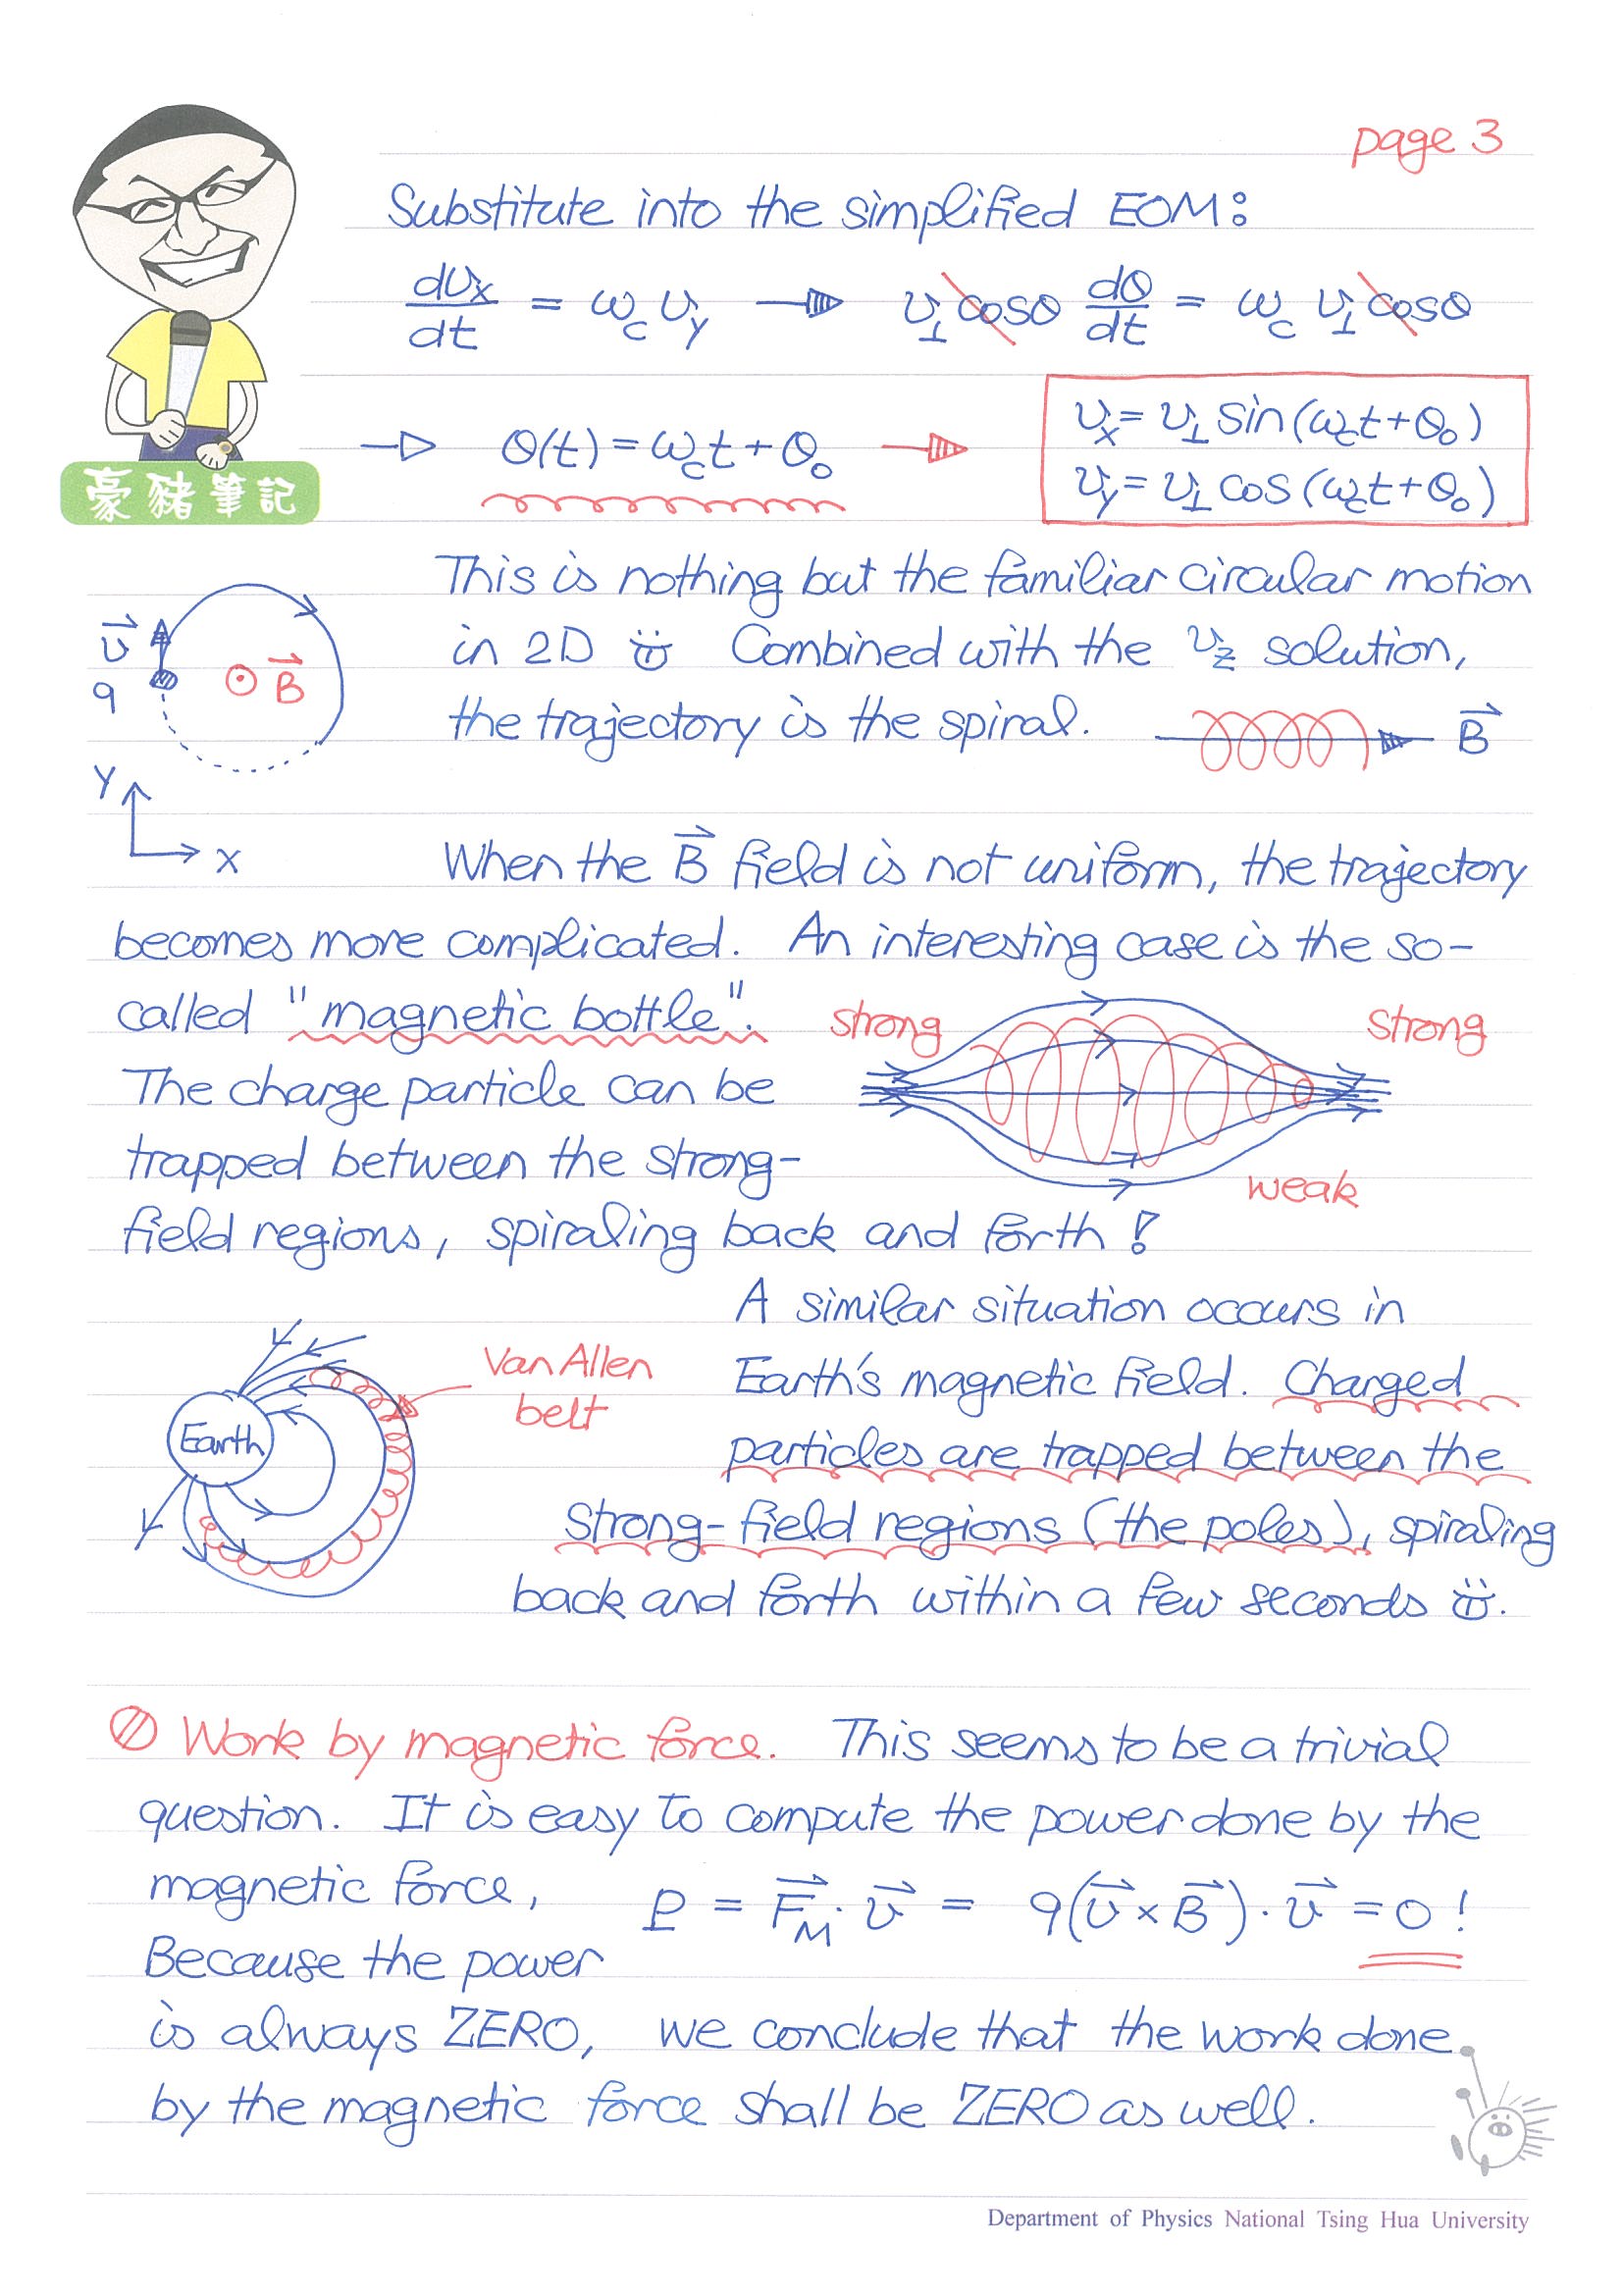 page 3
Substitute into the simplified EOM:
dvx/dt = ωc vy → v⊥ cosθ dθ/dt = ωc v⊥ cosθ
→ θ(t) = ωct + θ0 →
vx = v⊥ sin(ωct+θ0)
vy = v⊥ cos(ωct+θ0)
豪豬筆記
This is nothing but the familiar circular motion
in 2D Combined with the vz solution,
the trajectory is the spiral.
B
v
q
B
Y
x
When the B field is not uniform, the trajectory
becomes more complicated. An interesting case is the so-
called "magnetic bottle".
strong
strong
weak
The charge particle can be
trapped between the strong-
field regions, spiraling back and forth!
A similar situation occurs in
Earth's magnetic field. Charged
particles are trapped between the
strong-field regions (the poles), spiraling
back and forth within a few seconds .
Van Allen
belt
Earth
Work by magnetic force. This seems to be a trivial
question. It is easy to compute the power done by the
magnetic force, P = FM · v = q(v × B) · v = 0!
Because the power
is always ZERO, we conclude that the work done
by the magnetic force shall be ZERO as well.
Department of Physics National Tsing Hua University